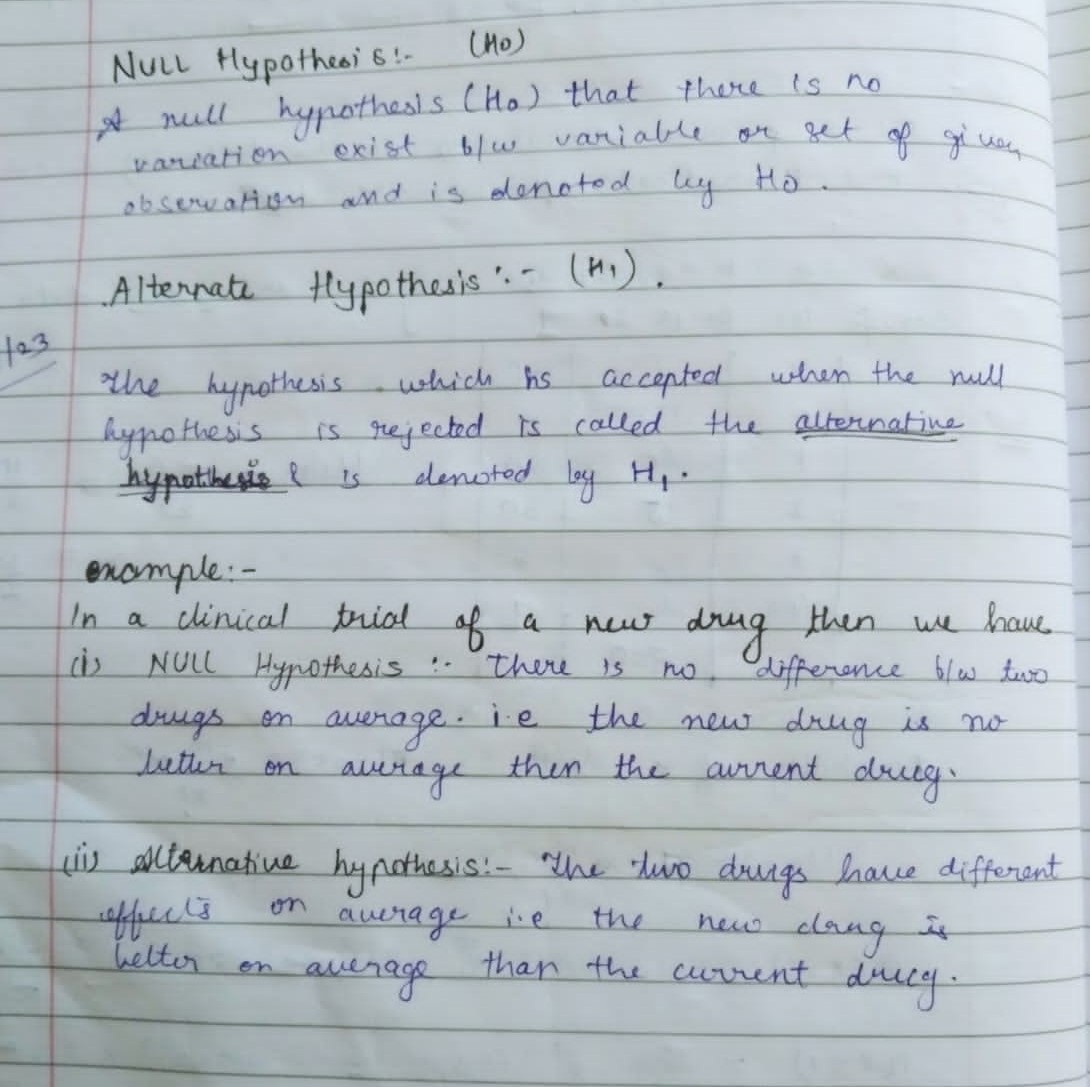 NULL Hypothesis:- (H0)
A null hypothesis (H0) that there is no
variation exist b/w variable or set of given
observation and is denoted by H0.
Alternate Hypothesis:- (H1).
The hypothesis which is accepted when the null
hypothesis is rejected is called the alternative
hypothesis & is denoted by H1.
example:-
In a clinical trial of a new drug then we have
(i) NULL Hypothesis:- There is no difference b/w two
drugs on average. i.e the new drug is no
better on average then the current drug.
(ii) Alternative hypothesis:- The two drugs have different
effects on average i.e the new drug is
better on average than the current drug.